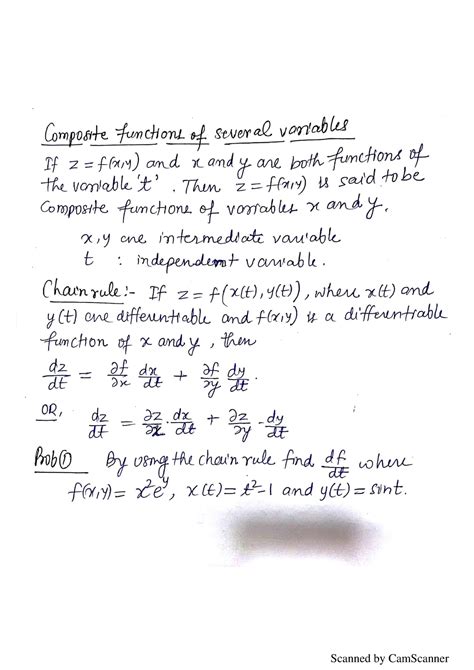 Composite functions of several variables
If z = f(x,y) and x and y are both functions of
the variable 't'. Then z = f(x,y) is said to be
Composite functions of variables x and y.
x, y are intermediate variable
t : independent variable.
Chain rule:- If z = f(x(t), y(t)), where x(t) and
y(t) are differentiable and f(x,y) is a differentiable
function of x and y, then
dz/dt = ∂f/∂x dx/dt + ∂f/∂y dy/dt.
OR, dz/dt = ∂z/∂x · dx/dt + ∂z/∂y · dy/dt
Prob① By using the chain rule find df/dt where
f(x,y) = x²e^y, x(t) = t²-1 and y(t) = sint.
Scanned by CamScanner